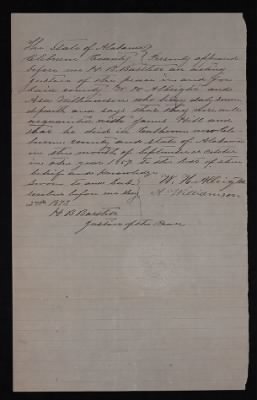 The State of Alabama
Cleburne County } Personly appeared
before me H B Barthor an acting
justice of the peace in and for
said county W. H. Albright and
Asa Williamson who being duly sworn
deposeth and says that they were well
acquainted with James Hill and
that he died in
county and State of Alabama
in the month of September or October
in the year 1857 To the best of their
belief and knowledge
Sworn to and sub W. H. Albright
scribed before me this A Williamson
1878
H B Barthor
Justice of the Peace